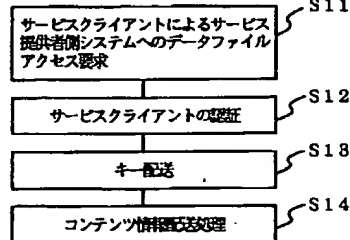 S11
サービスクライアントによるサービス
提供者側システムへのデータファイル
アクセス要求
S12
サービスクライアントの認証
S13
キー配送
S14
コンテンツ情報配送処理